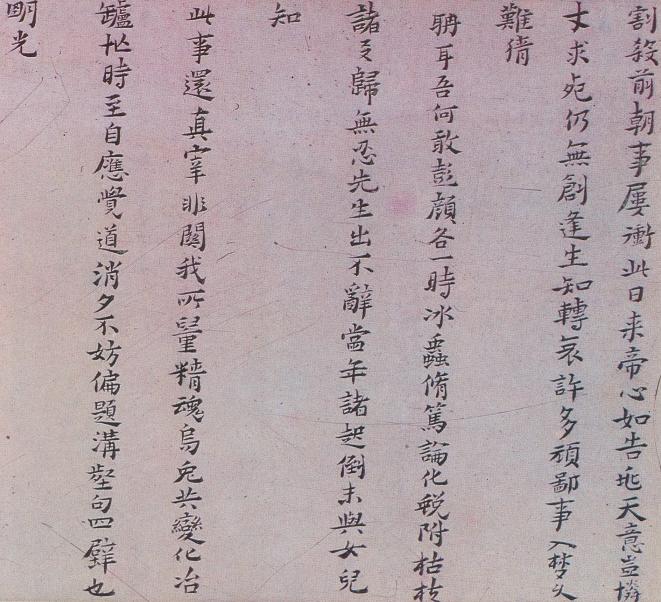 割殺前朝事屢衝此日来帝心如告兆天意豈憐
才求死仍無創逢生知轉哀許多頑鄙事入梦久
難猜
聃耳吾何敢彭顔各一時冰蟲脩篤論化蛻附枯枝
諸友歸無忍先生出不辭當年諸起倒未與女兒
知
此事還真宰非關我所量精魂烏兔共變化冶
罏忙時至自應覺道消夕不妨偏題溝壑句四壁也
明光